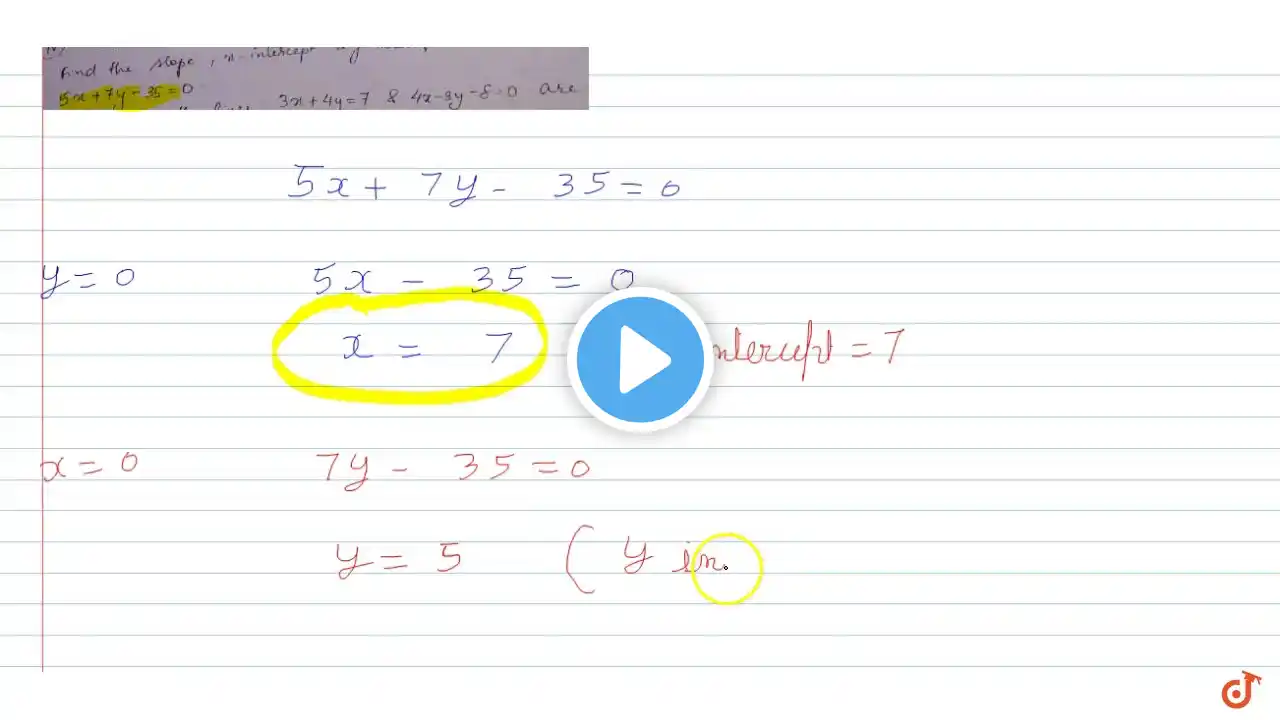 Find the slope, x-intercept
5x+7y-35=0
3x+4y=7 & 4x-3y-8=0 are
5x+ 7y- 35=0
y=0 5x - 35 = 0
x = 7 ntercept = 7
x=0 7y- 35=0
y= 5 ( y in